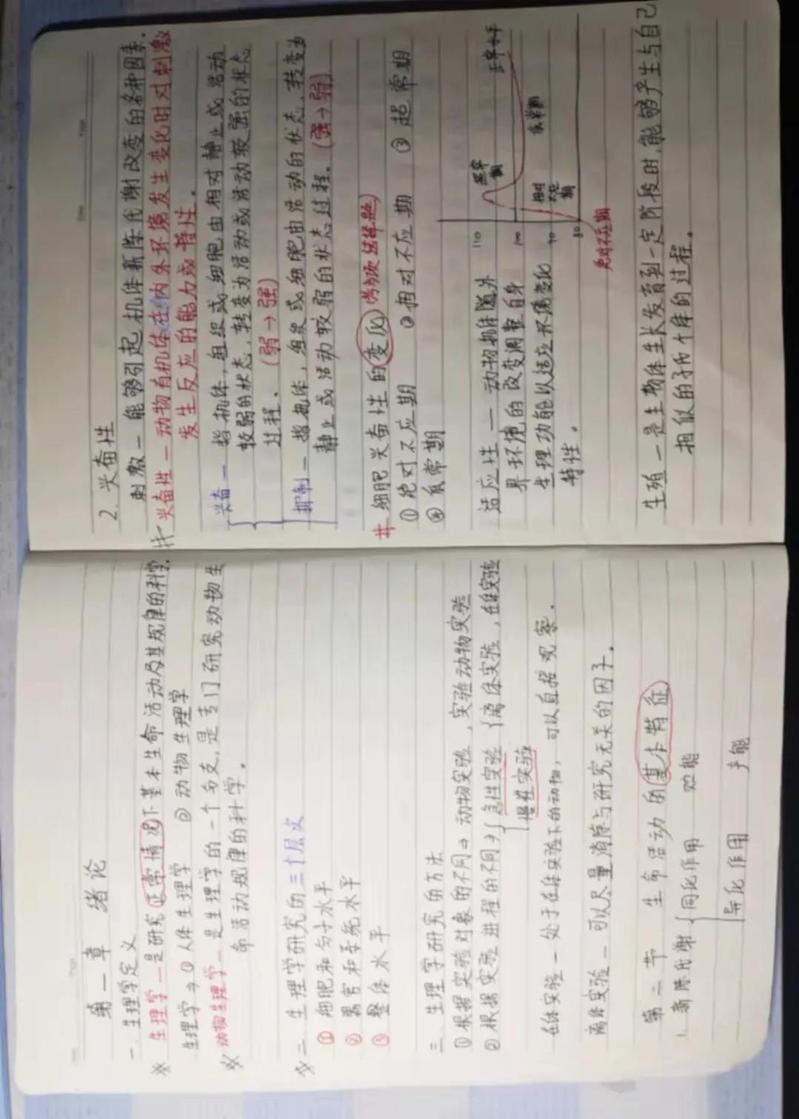 第一章 绪论
一. 生理学定义
※ 生理学 — 是研究正常情况下基本生命活动及其规律的科学.
生理学 → ① 人体生理学 ② 动物生理学
※ 动物生理学 — 是生理学的一个分支,是专门研究动物生
命活动规律的科学。
※ 二. 生理学研究的三个层次
① 细胞和分子水平
② 器官和系统水平
③ 整体水平
三. 生理学研究的方法
① 根据实验对象的不同→ 动物实验, 实验动物实验
② 根据实验进程的不同→ 急性实验 离体实验, 在体实验
慢性实验
在体实验 — 处于在体实验下的动物, 可以直接观察.
离体实验 — 可以尽量消除与研究无关的因子.
第二节 生命活动的基本特征
1. 新陈代谢 同化作用 贮能
异化作用 产能
2. 兴奋性
刺激 — 能够引起机体新陈代谢改变的各种因素.
兴奋性 — 动物有机体在内外环境发生变化时对刺激
发生反应的能力或特性。
兴奋 — 指机体,组织或细胞由相对静止或活动
较弱的状态,转变为活动或活动较强的状态
过程. (弱→强)
抑制 — 指机体,组织或细胞由活动的状态,转变为
静止或活动较弱的状态过程. (强→弱)
# 细胞兴奋性的变化
① 绝对不应期 ② 相对不应期 ③ 超常期
④ 低常期
110
100
90
80
超常期
正常水平
相对不应期
低常期
绝对不应期
适应性 — 动物机体随外
界环境的改变调整自身
生理功能以适应环境变化
特性。
生殖 — 是生物体生长发育到一定阶段时,能够产生与自己
相似的子代个体的过程。